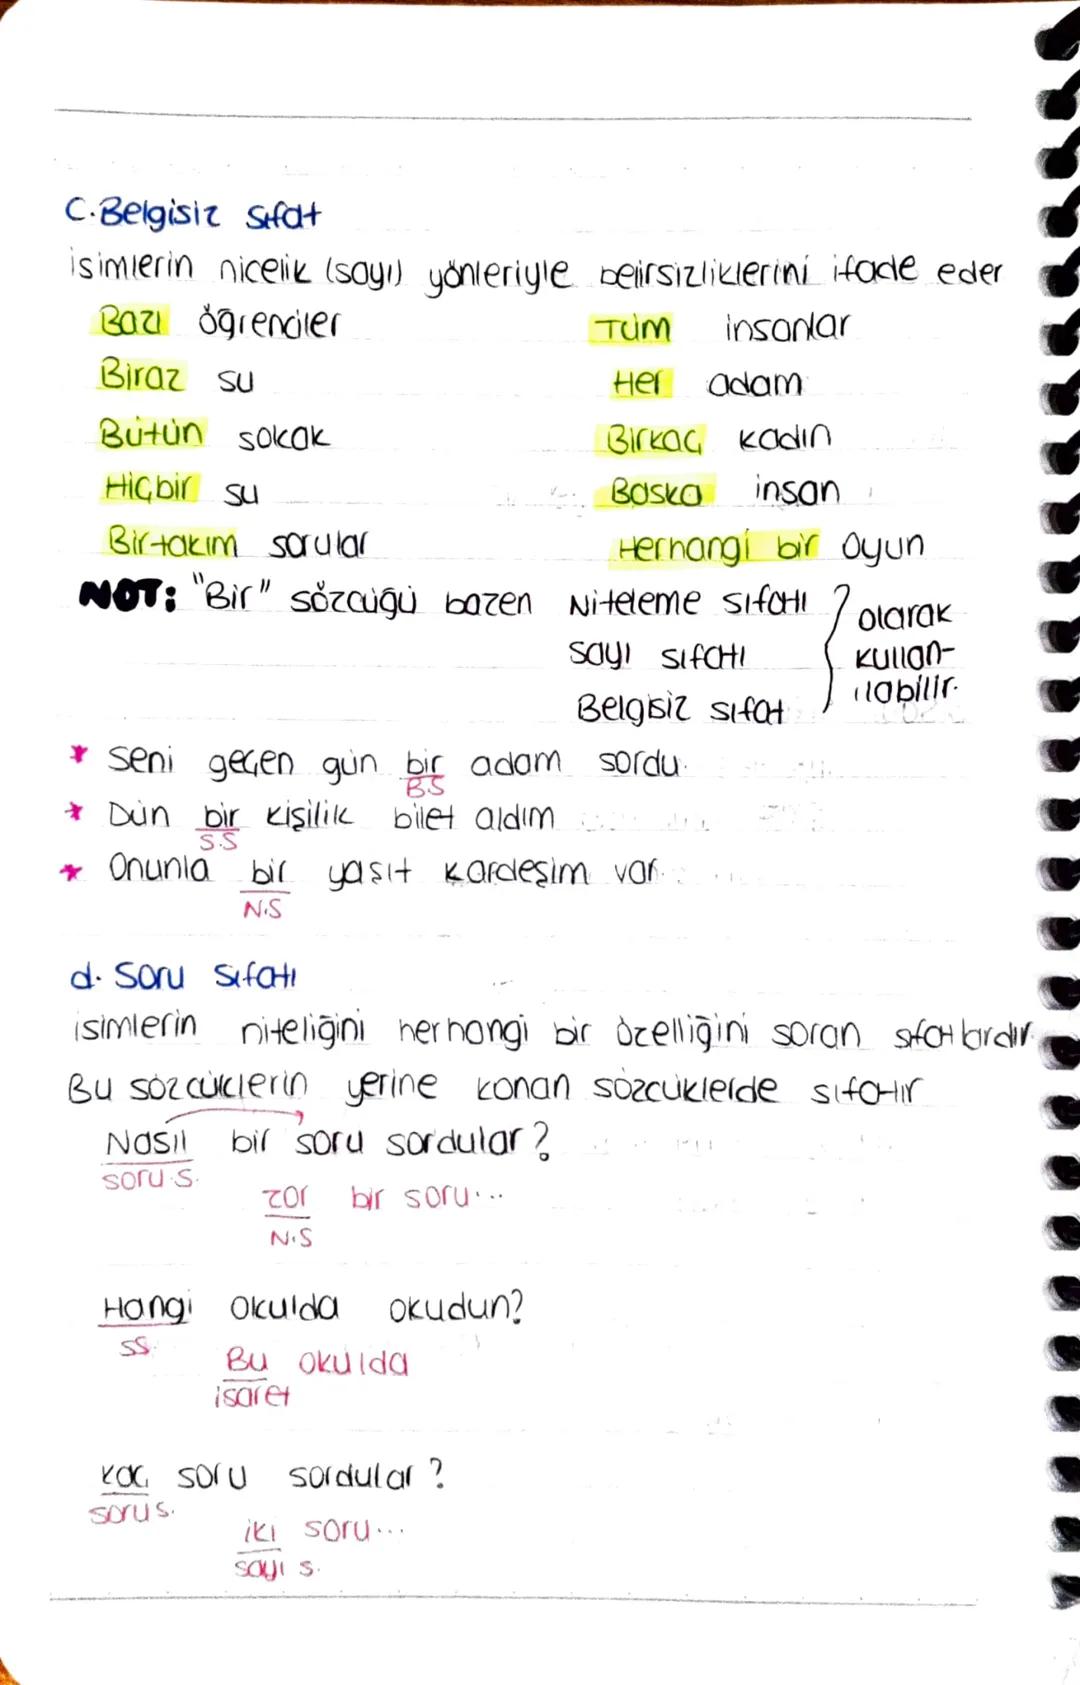 C.Belgisiz sıfat
isimlerin nicelik (sayı) yönleriyle belirsizliklerini ifade eder
Bazı öğrenciler Tüm insanlar
Biraz su Her adam
Bütün sokak Birkaç kadın
Hiçbir su Baska insan
Birtakım sorular Herhangi bir oyun
NOT: "Bir" sözcüğü bazen Niteleme sıfatı
sayı sıfatı
Belgisiz sıfat
olarak
kullan-
ılabilir.
* Seni geçen gün bir adam sordu.
B.S
* Dün bir kişilik bilet aldım
S.S
* Onunla bir yaşıt kardeşim var.
N.S
d. Soru Sıfatı
isimlerin niteliğini herhangi bir özelliğini soran sıfatlardır.
Bu sözcüklerin yerine konan sözcüklerde sıfattır
Nasıl bir soru sordular?
soru s.
zor bir soru...
N.S
Hangi okulda okudun?
SS.
Bu okulda
isaret
Kaç soru sordular?
soru s.
iki soru...
sayı s.